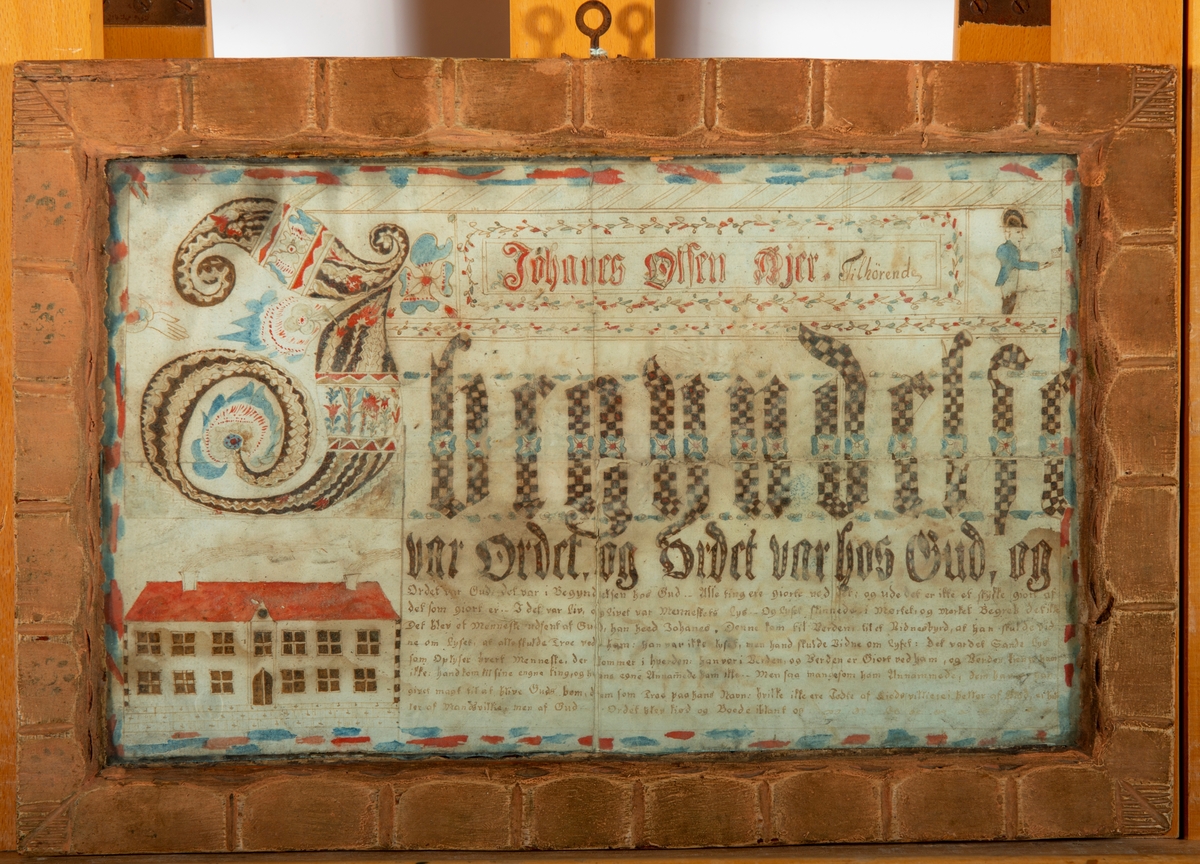 Jöhanes Olsen Ajer. Tilhörende,
I begyndelse
var Ordet, og Ordet var hos Gud, og
Ordet var Gud, det var i Begyndelsen hos Gud -- Alle ting ere giorte ved det: og uden det er ikke et stykke giort af
det som giort er -- I det var Liv, og Livet var Menneskets Lys -- Og Lyset skinnede i Mørket, og mørket Begred det ikke
Det blev et Menneske udsent af Gud, han heed Johanes, Denne kom til Verden til et Vidnesbyrd, at han skulde vid
ne om Lyset, at alle skulde Troe ved ham: han var ikke lyset, men hand skulde Vidne om Lyset: Det var det Sande Lys
som Oplyser hvert Menneske, der kommer i hverden: han var i Verden, og Verden er Giort ved ham, og Verden
ikke: hand kom til sine eygne ting, og hans egne Annamede ham ikke -- Men saa mange som ham Annamede,
givet magt til at blive Guds born, dem som Troe paa hans Navn: hvilke ikke ere fødte af
ler af Mands vilke, mer af Gud -- Ordet blev kiød og Boede iblant os